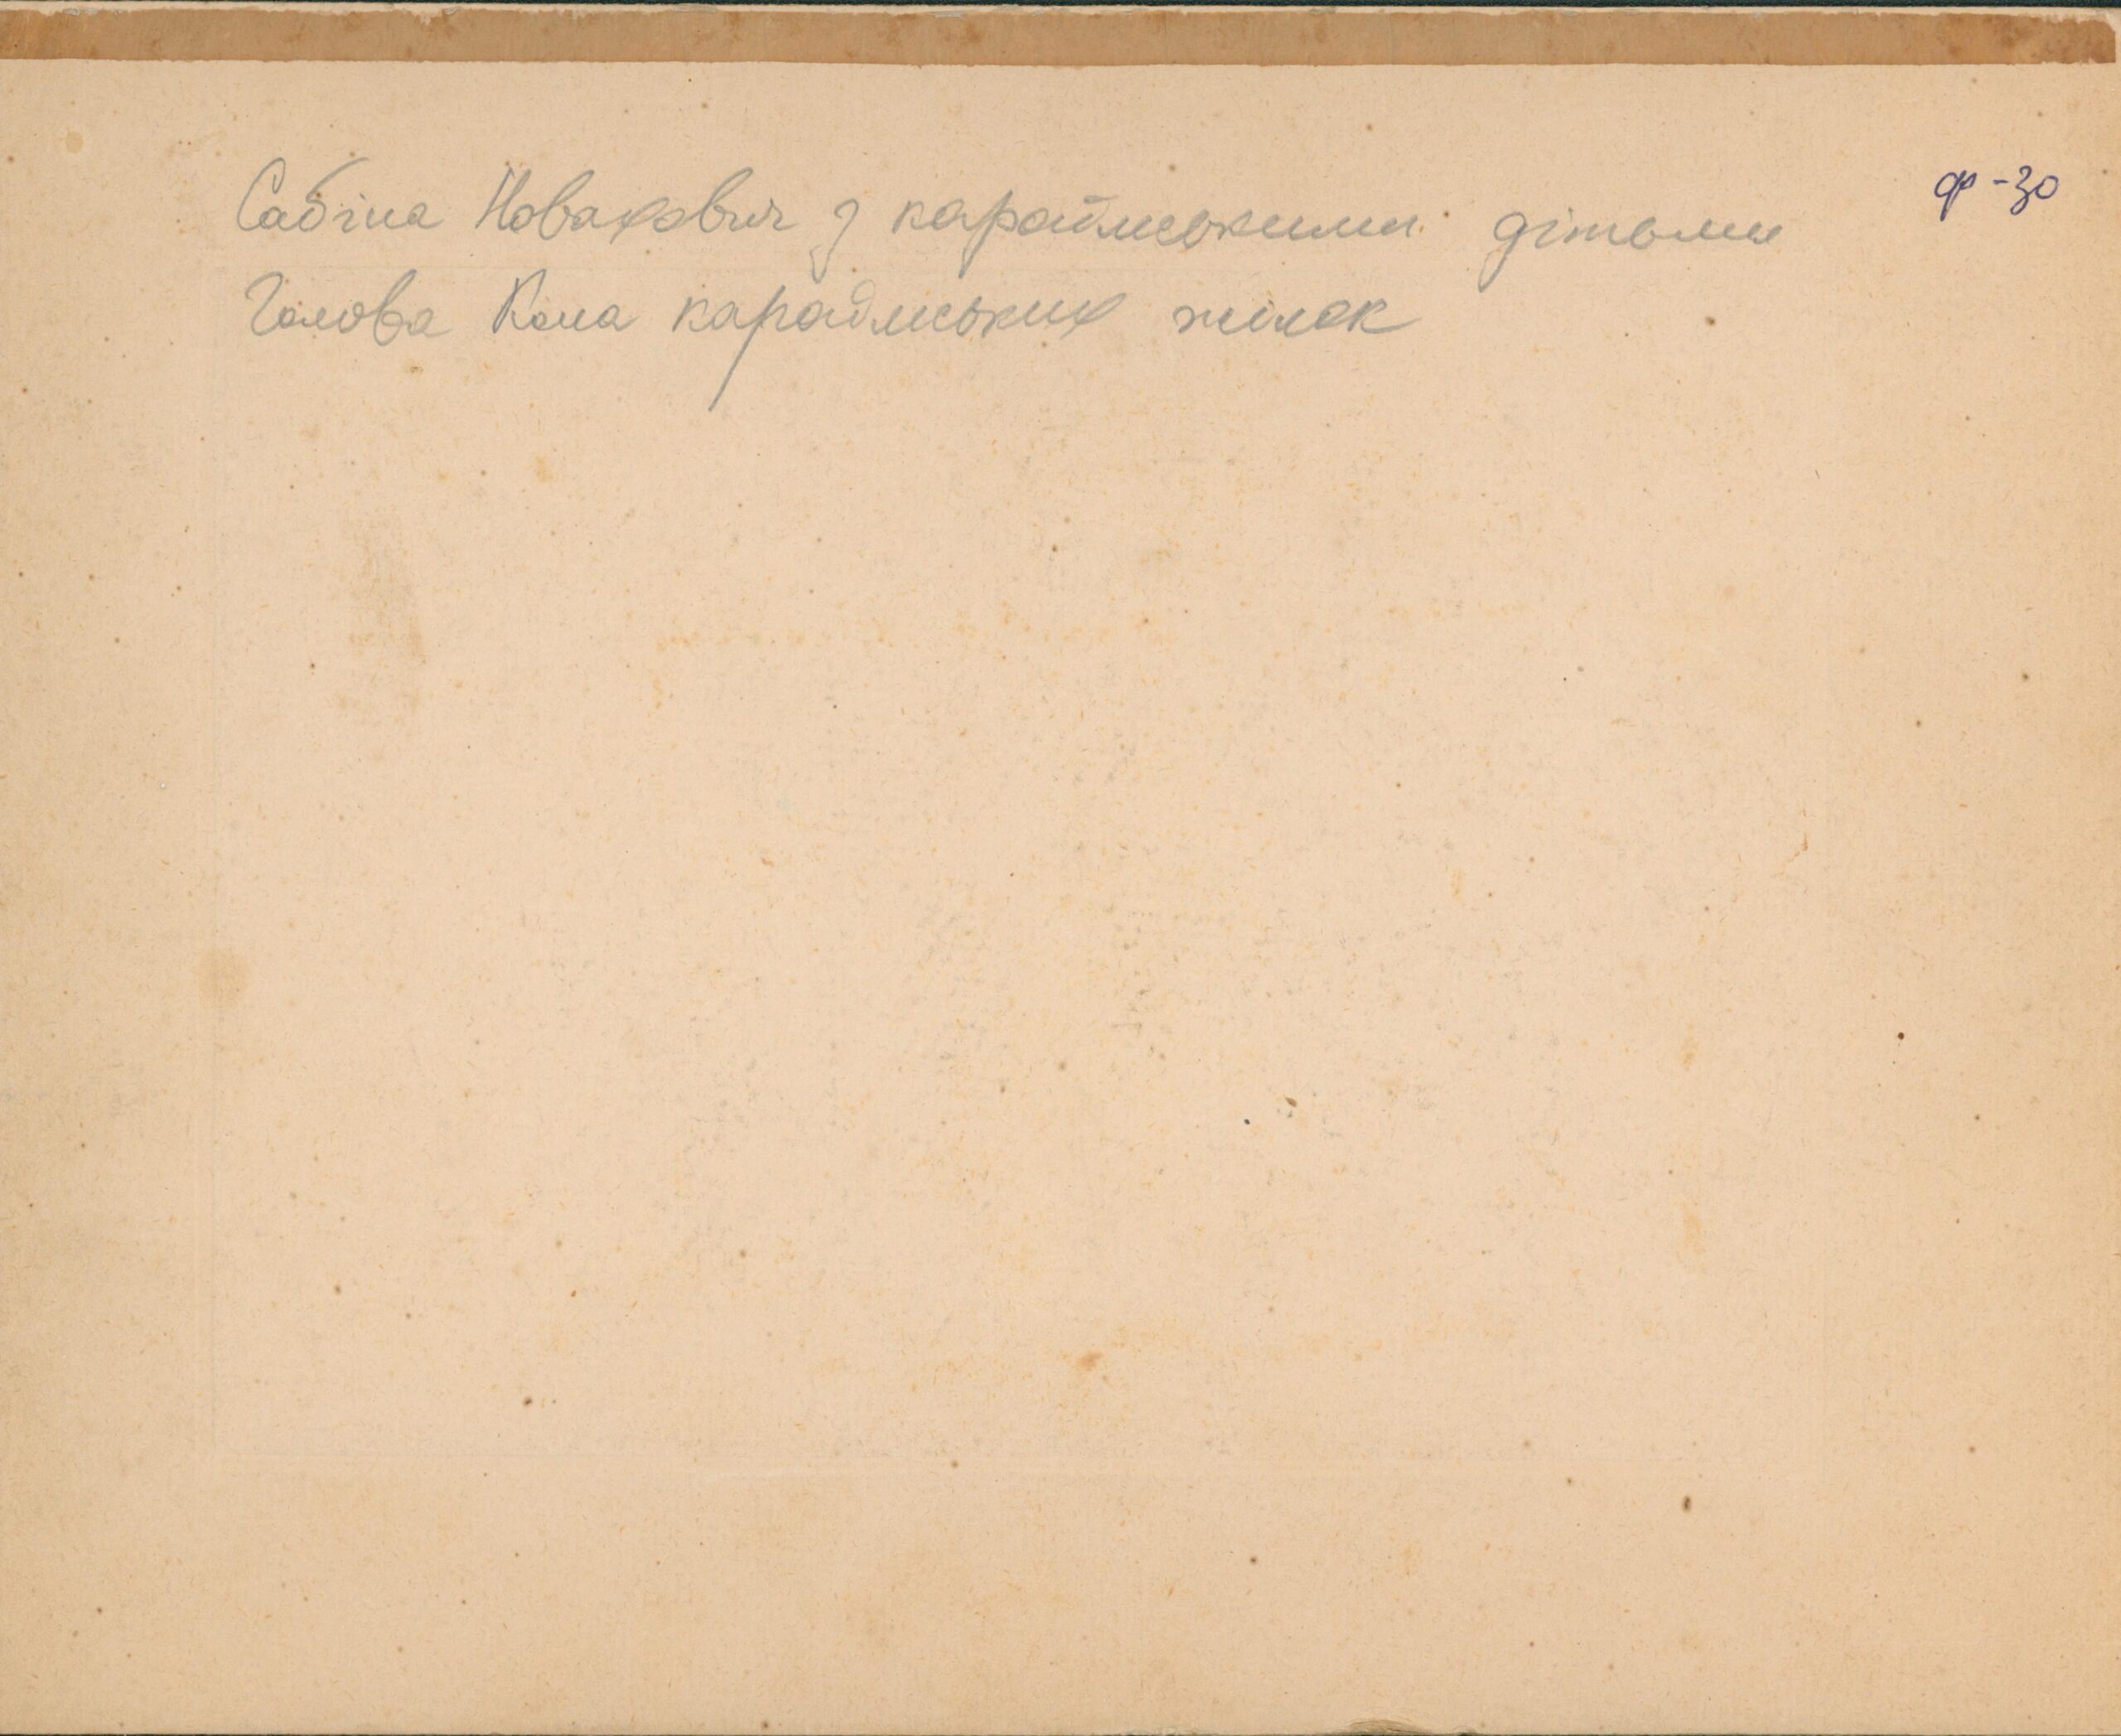 Сабіна Новахович з караїмськими дітьми
ф-30
Голова Кола караїмських жінок